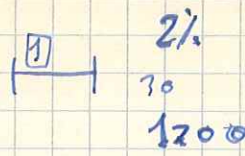 1
2%
30
1200